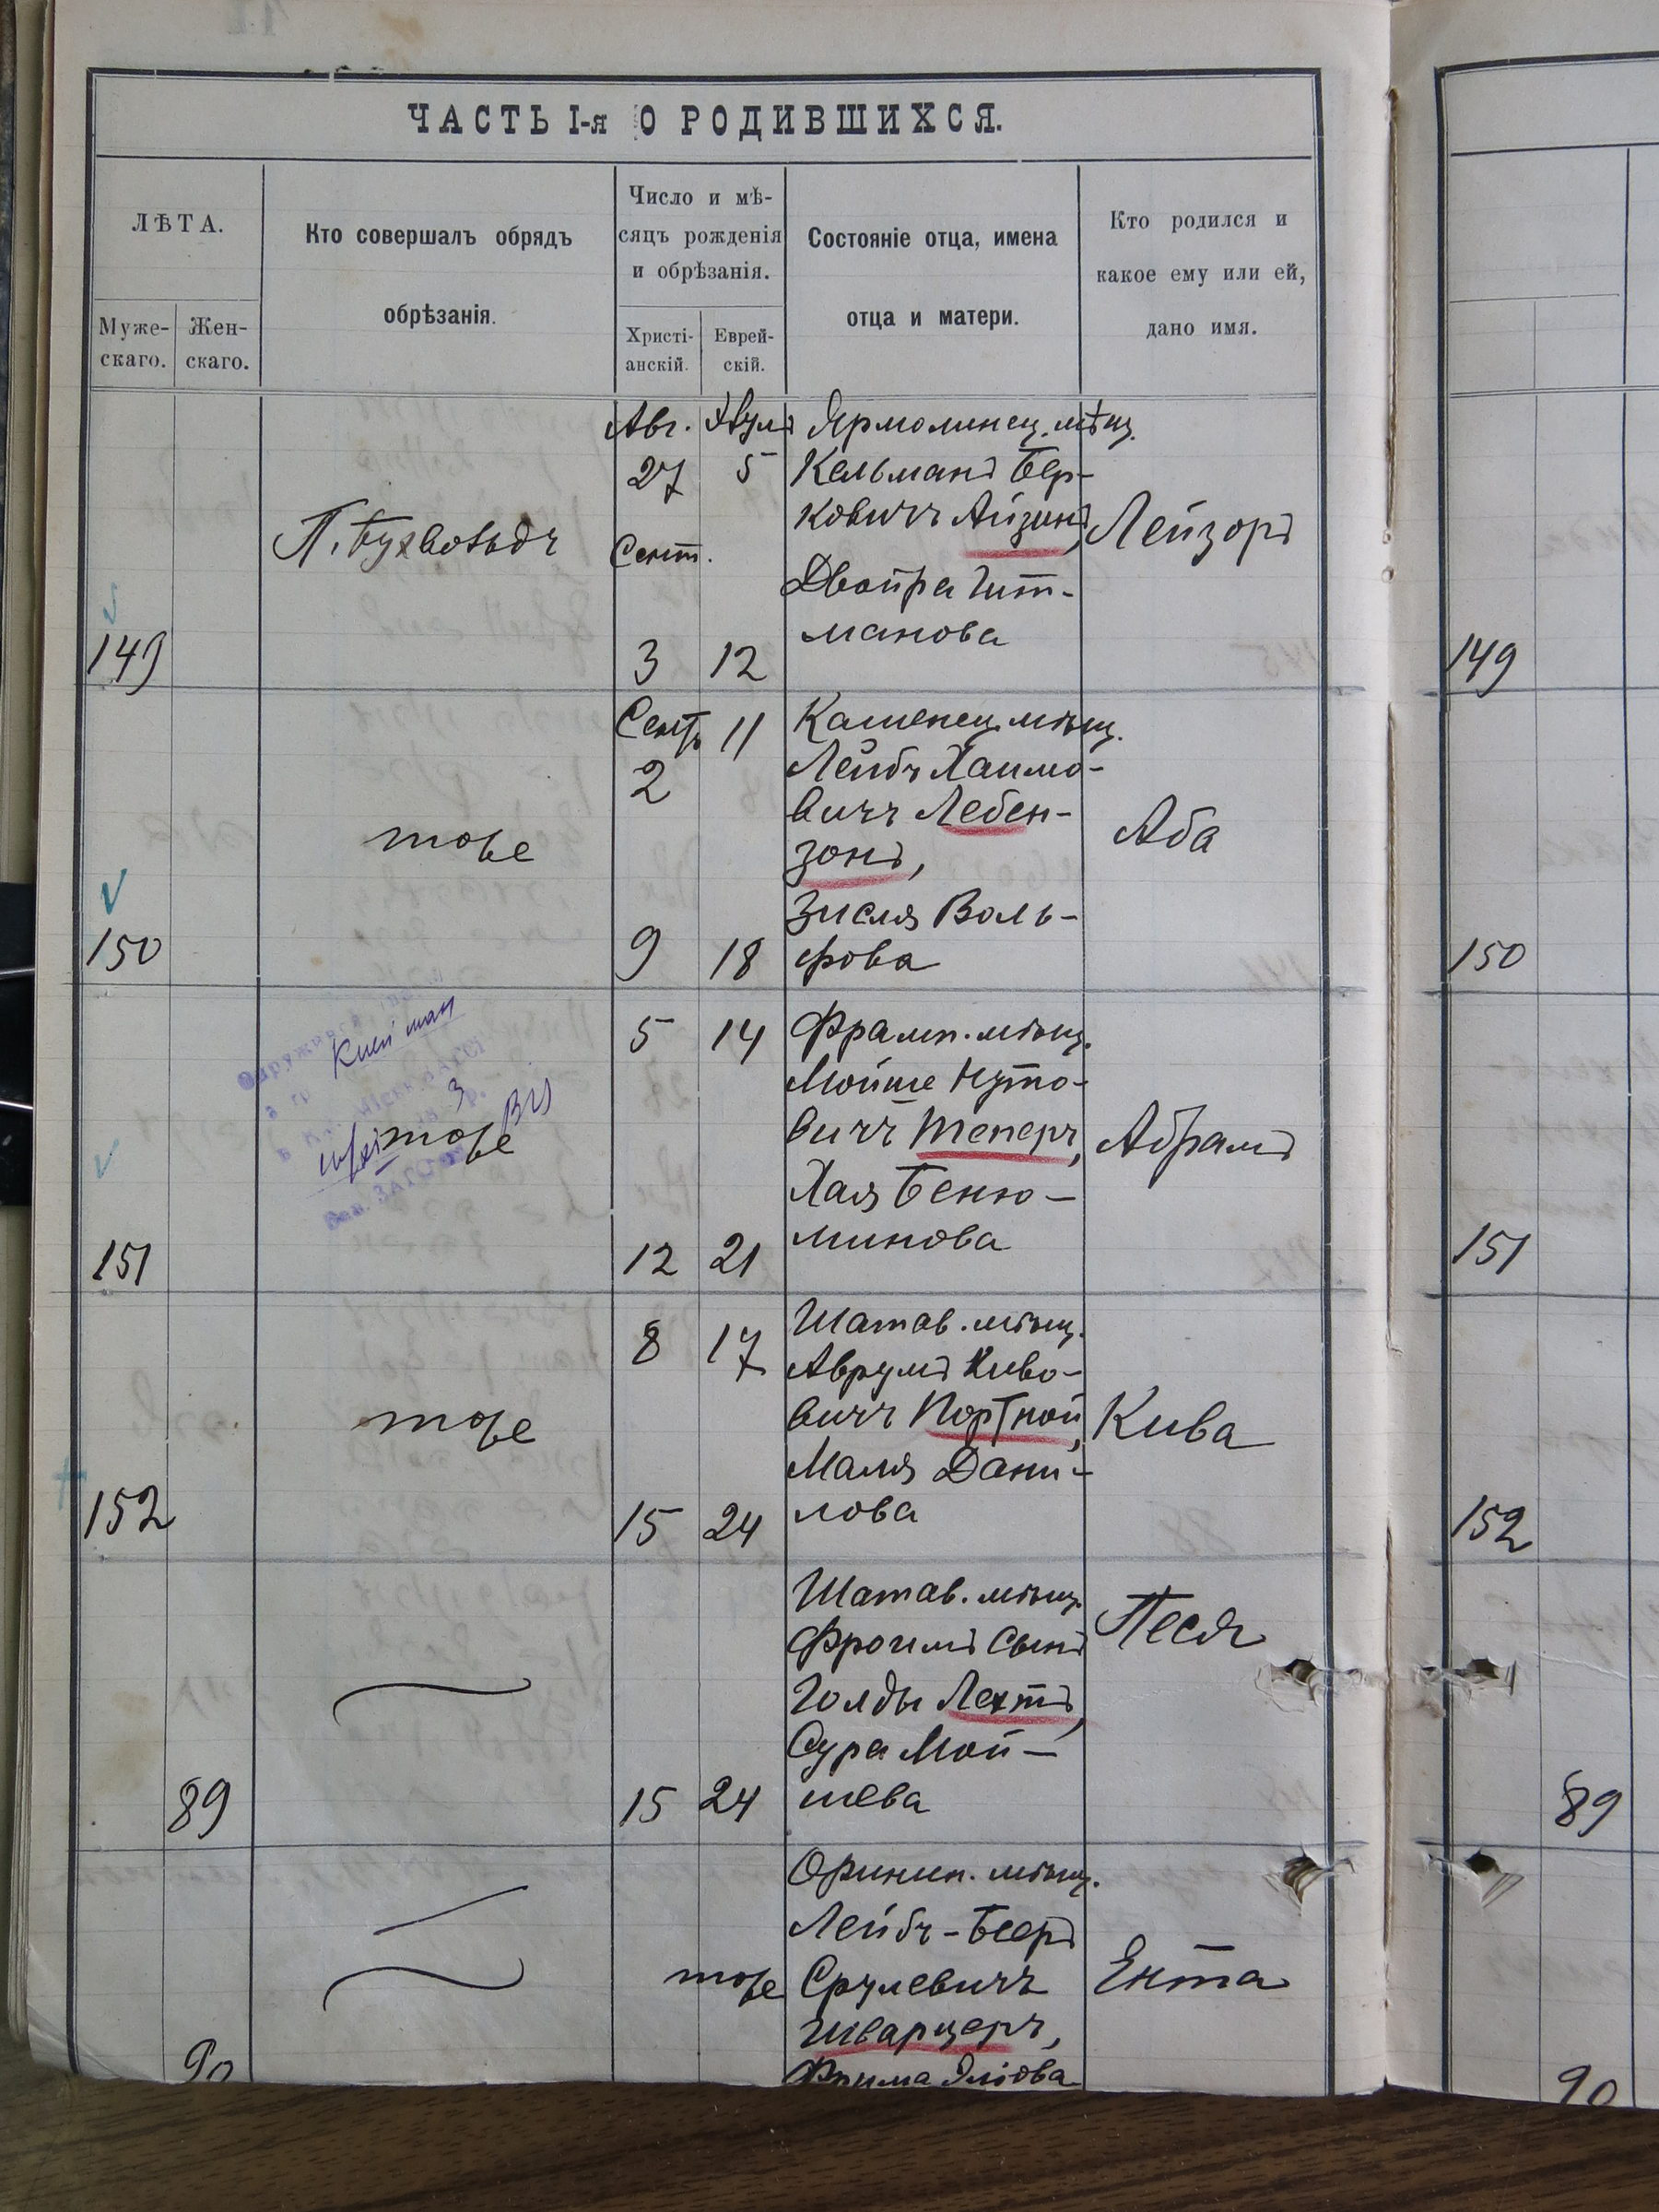 ЧАСТЬ I-я О РОДИВШИХСЯ.
ЛѢТА.
Муже-
скаго.
Жен-
скаго.
Кто совершалъ обрядъ
обрѣзанія.
Число и мѣ-
сяцъ рожденія
и обрѣзанія.
Христі-
анскій.
Еврей-
скій.
Состояніе отца, имена
отца и матери.
Кто родился и
какое ему или ей,
дано имя.
149
Авг.
27
Сент.
3
5
12
Ярмолинец. мѣщ.
Кельманъ Бер-
ковичъ Айзинъ,
Двойра Гит-
манова
Лейзоръ
149
150
тоже
Сент.
2
9
11
18
Каменец. мѣщ.
Лейбъ Хаимо-
вичъ Лебен-
зонъ,
Зисля Воль-
фова
Аба
150
151
тоже
5
12
14
21
Фрамп. мѣщ.
Мойше Нуто-
вичъ Теперъ,
Хая Беню-
минова
Абрамъ
151
152
тоже
8
15
17
24
Шатав. мѣщ.
Аврумъ Киво-
вичъ Портной,
Маля Дани-
лова
Кива
152
89
15
24
Шатав. мѣщ.
Фроимъ сынъ
Голды Лехтъ,
Сура Мой-
шева
Песя
89
90
тоже
Оринин. мѣщ.
Лейбъ-Бееръ
Срулевичъ
Шварцеръ,
Фрима Эліова
Ента
90